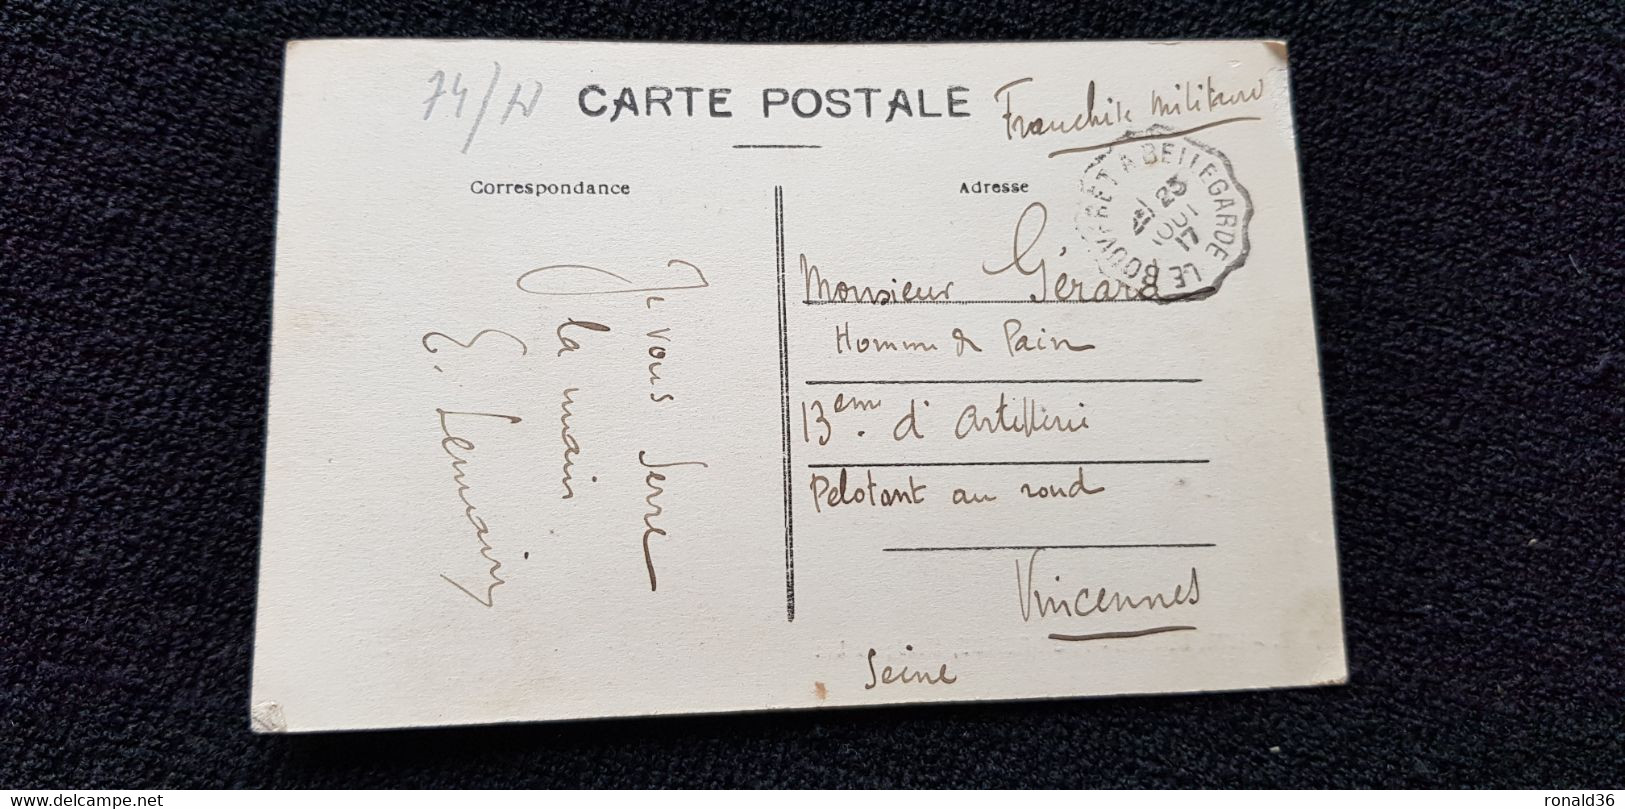 74/
CARTE POSTALE
Franchise militaire
Correspondance
Adresse
LE BOUVERET A BELLEGARDE
23
17
Monsieur Gérard
Homme de Pain
13ème. d'Artillerie
Pelotant au rond
Vincennes
Seine
Je vous serre
la main
E. Lemaire
ronald36